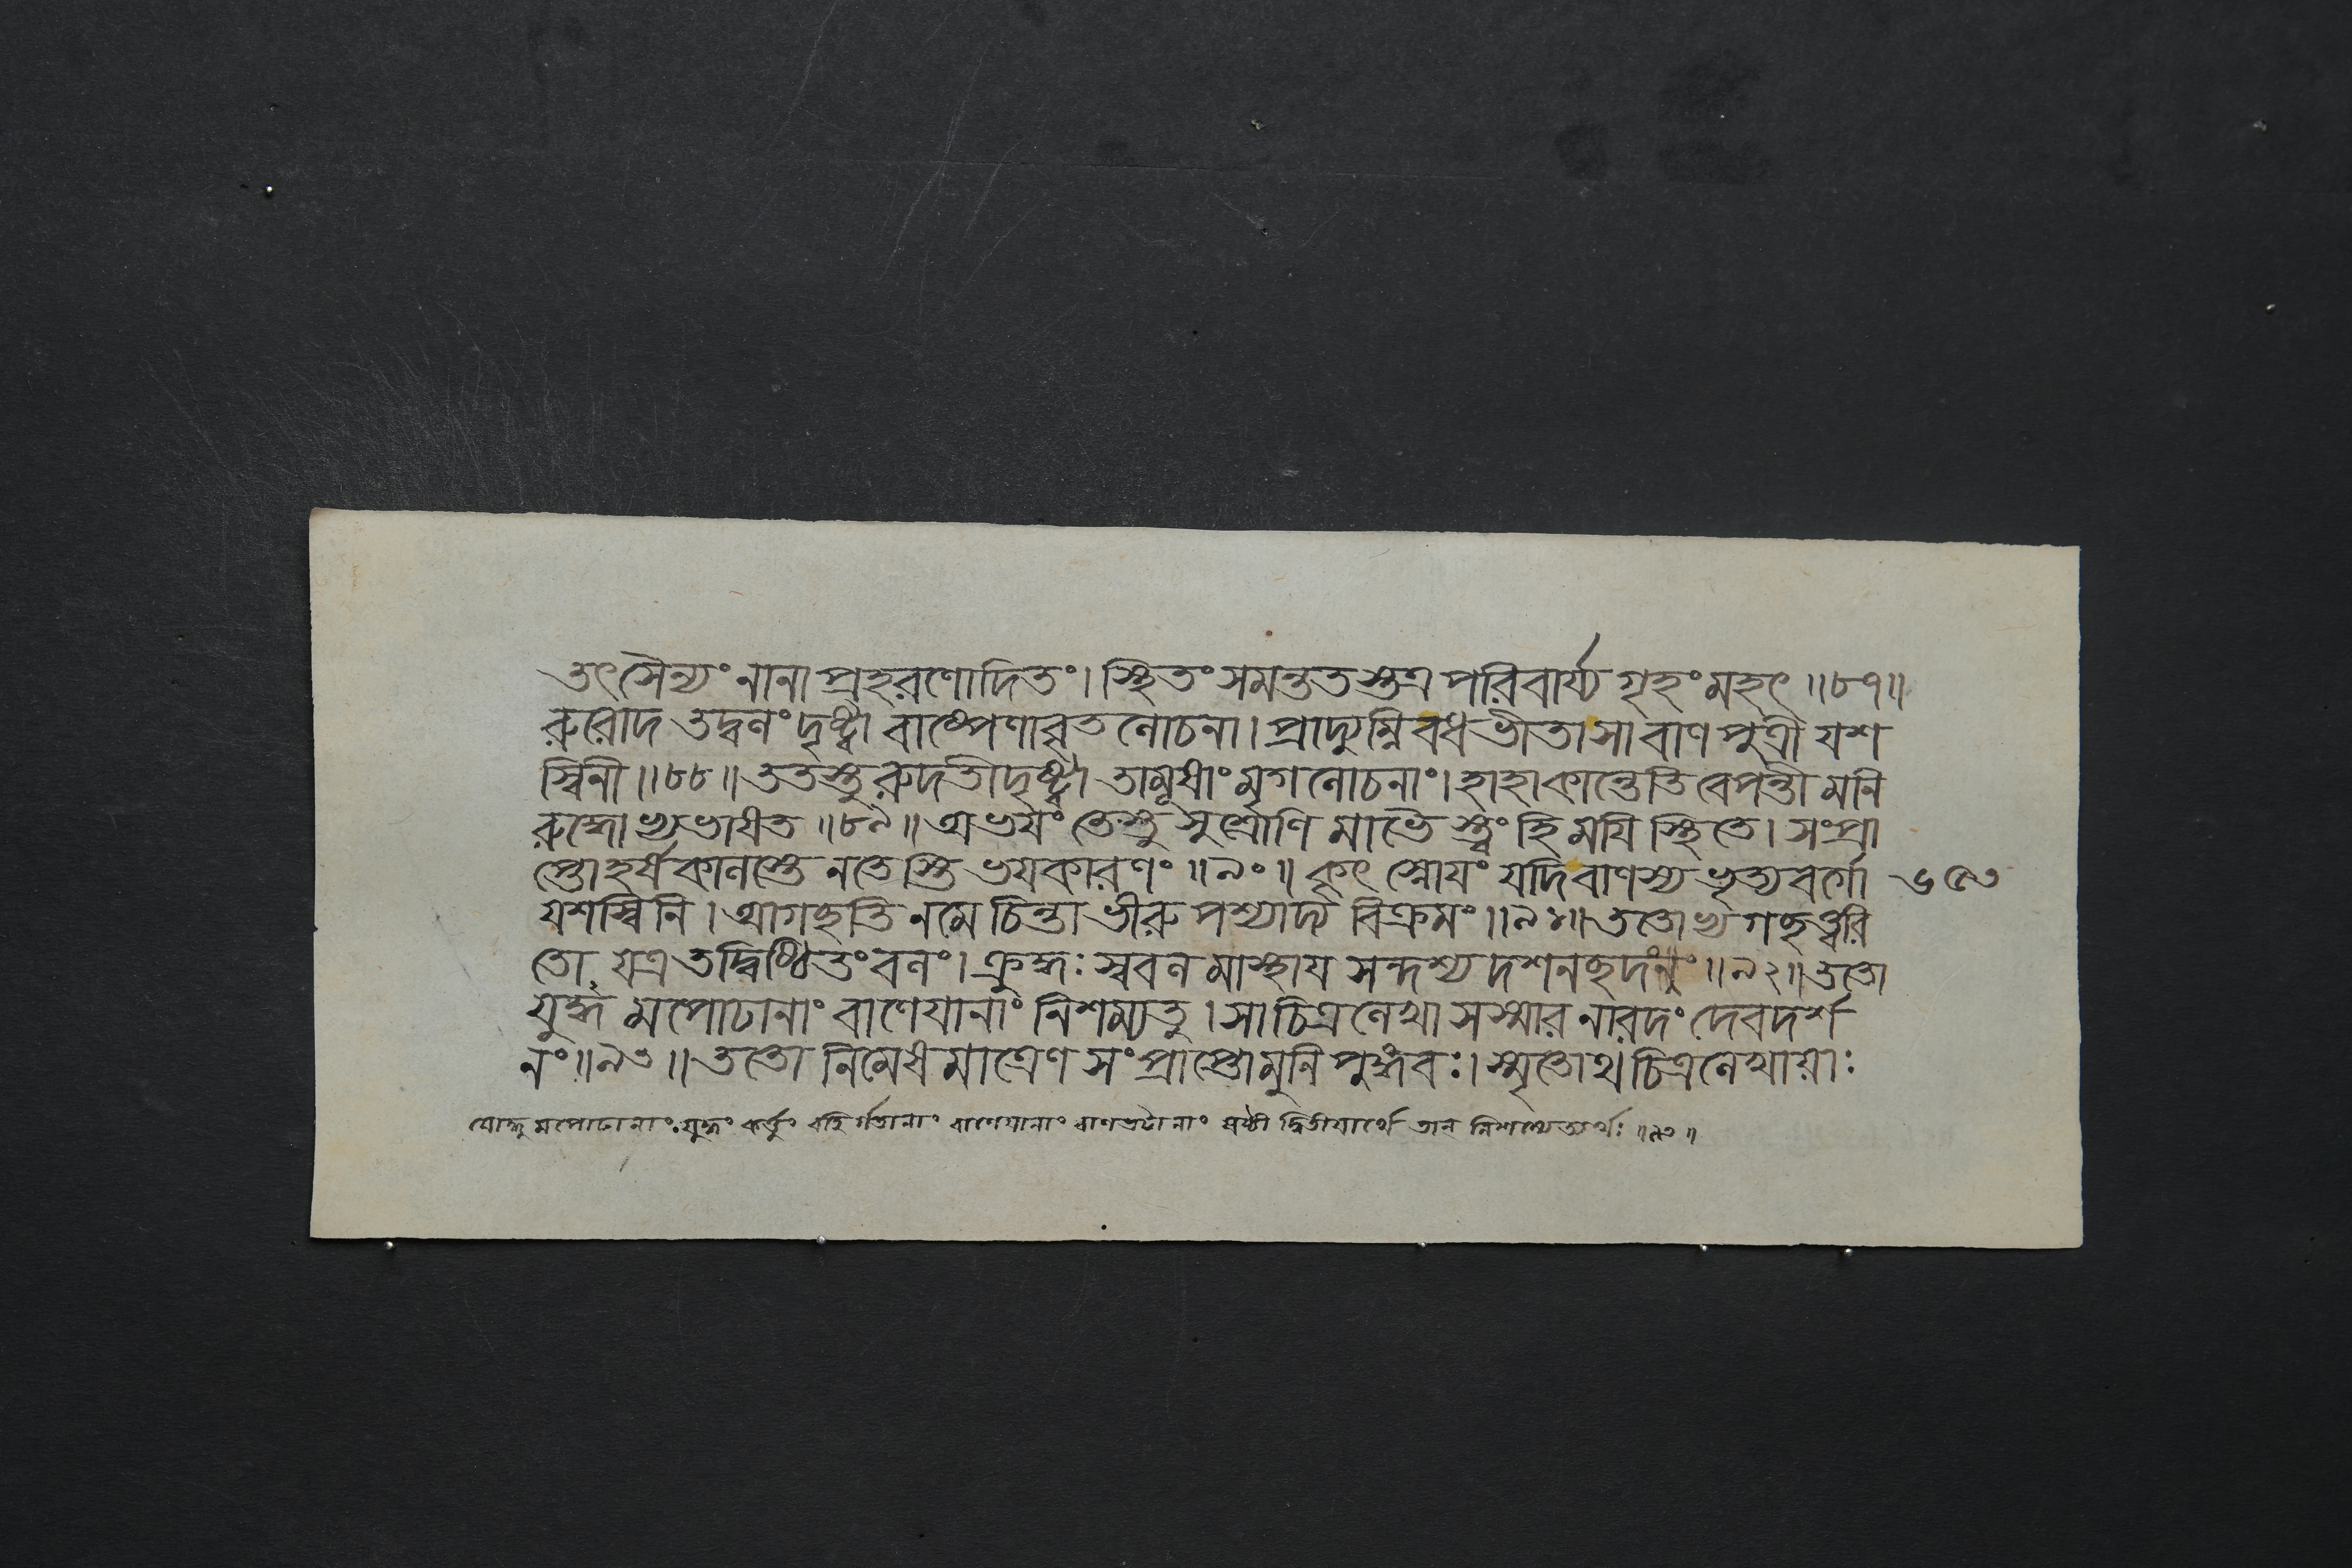 তৎসৈন্যং নানাপ্রহরণোদিতং। স্থিতং সমন্ততস্তত্র পরিবার্য্য গৃহং মহৎ ॥৮৭॥
রুরোদ তদ্বলং দৃষ্ট্বা বাষ্পেণাবৃতলোচনা। প্রাদ্যুম্নিবধভীতা সা বাণপুত্রী যশ
স্বিনী॥৮৮॥ ততস্তু রুদতীং দৃষ্ট্বা তামূষাং মৃগলোচনাং। হাহাকান্তেতি বেপন্তীমনি
রুদ্ধোভ্যভাষত ॥৮৯॥ অভয়ং তেস্তু সুশ্রোণি মাভৈস্ত্বং হি ময়ি স্থিতে। সংপ্রা
প্তোহর্ষকালস্তে নতেস্তি ভয়কারণং ॥৯০॥ কৃৎস্নোয়ং যদি বাণস্য ভৃত্যবর্গো ৬৫৩
যশস্বিনি। আগচ্ছতি নমে চিন্তা ভীরু পশ্যাদ্য বিক্রমং॥৯১॥ ততোভ্যগচ্ছত্ত্বরি
তো যত্র তদ্বিষ্ঠিতং বলং। ক্রুদ্ধঃ স্ববলমাস্থায় সন্দশ্য দশনচ্ছদং॥৯২॥ ততো
যুদ্ধমপোঢানাং বাণেয়ানাং নিশম্যতু। সা চিত্রলেখা সস্মার নারদং দেবদর্শ
নং॥৯৩॥ ততো নিমেষমাত্রেণ সংপ্রাপ্তোমুনিপুঙ্গবঃ। স্মৃতোথ চিত্রলেখায়াঃ
যোদ্ধুমপোঢানাং যুদ্ধং কর্ত্তুং বহির্গতানাং বাণেয়ানাং বাণভটানাং ষষ্ঠী দ্বিতীয়ার্থে তান্ নিশম্যেত্যর্থঃ॥৯৩॥